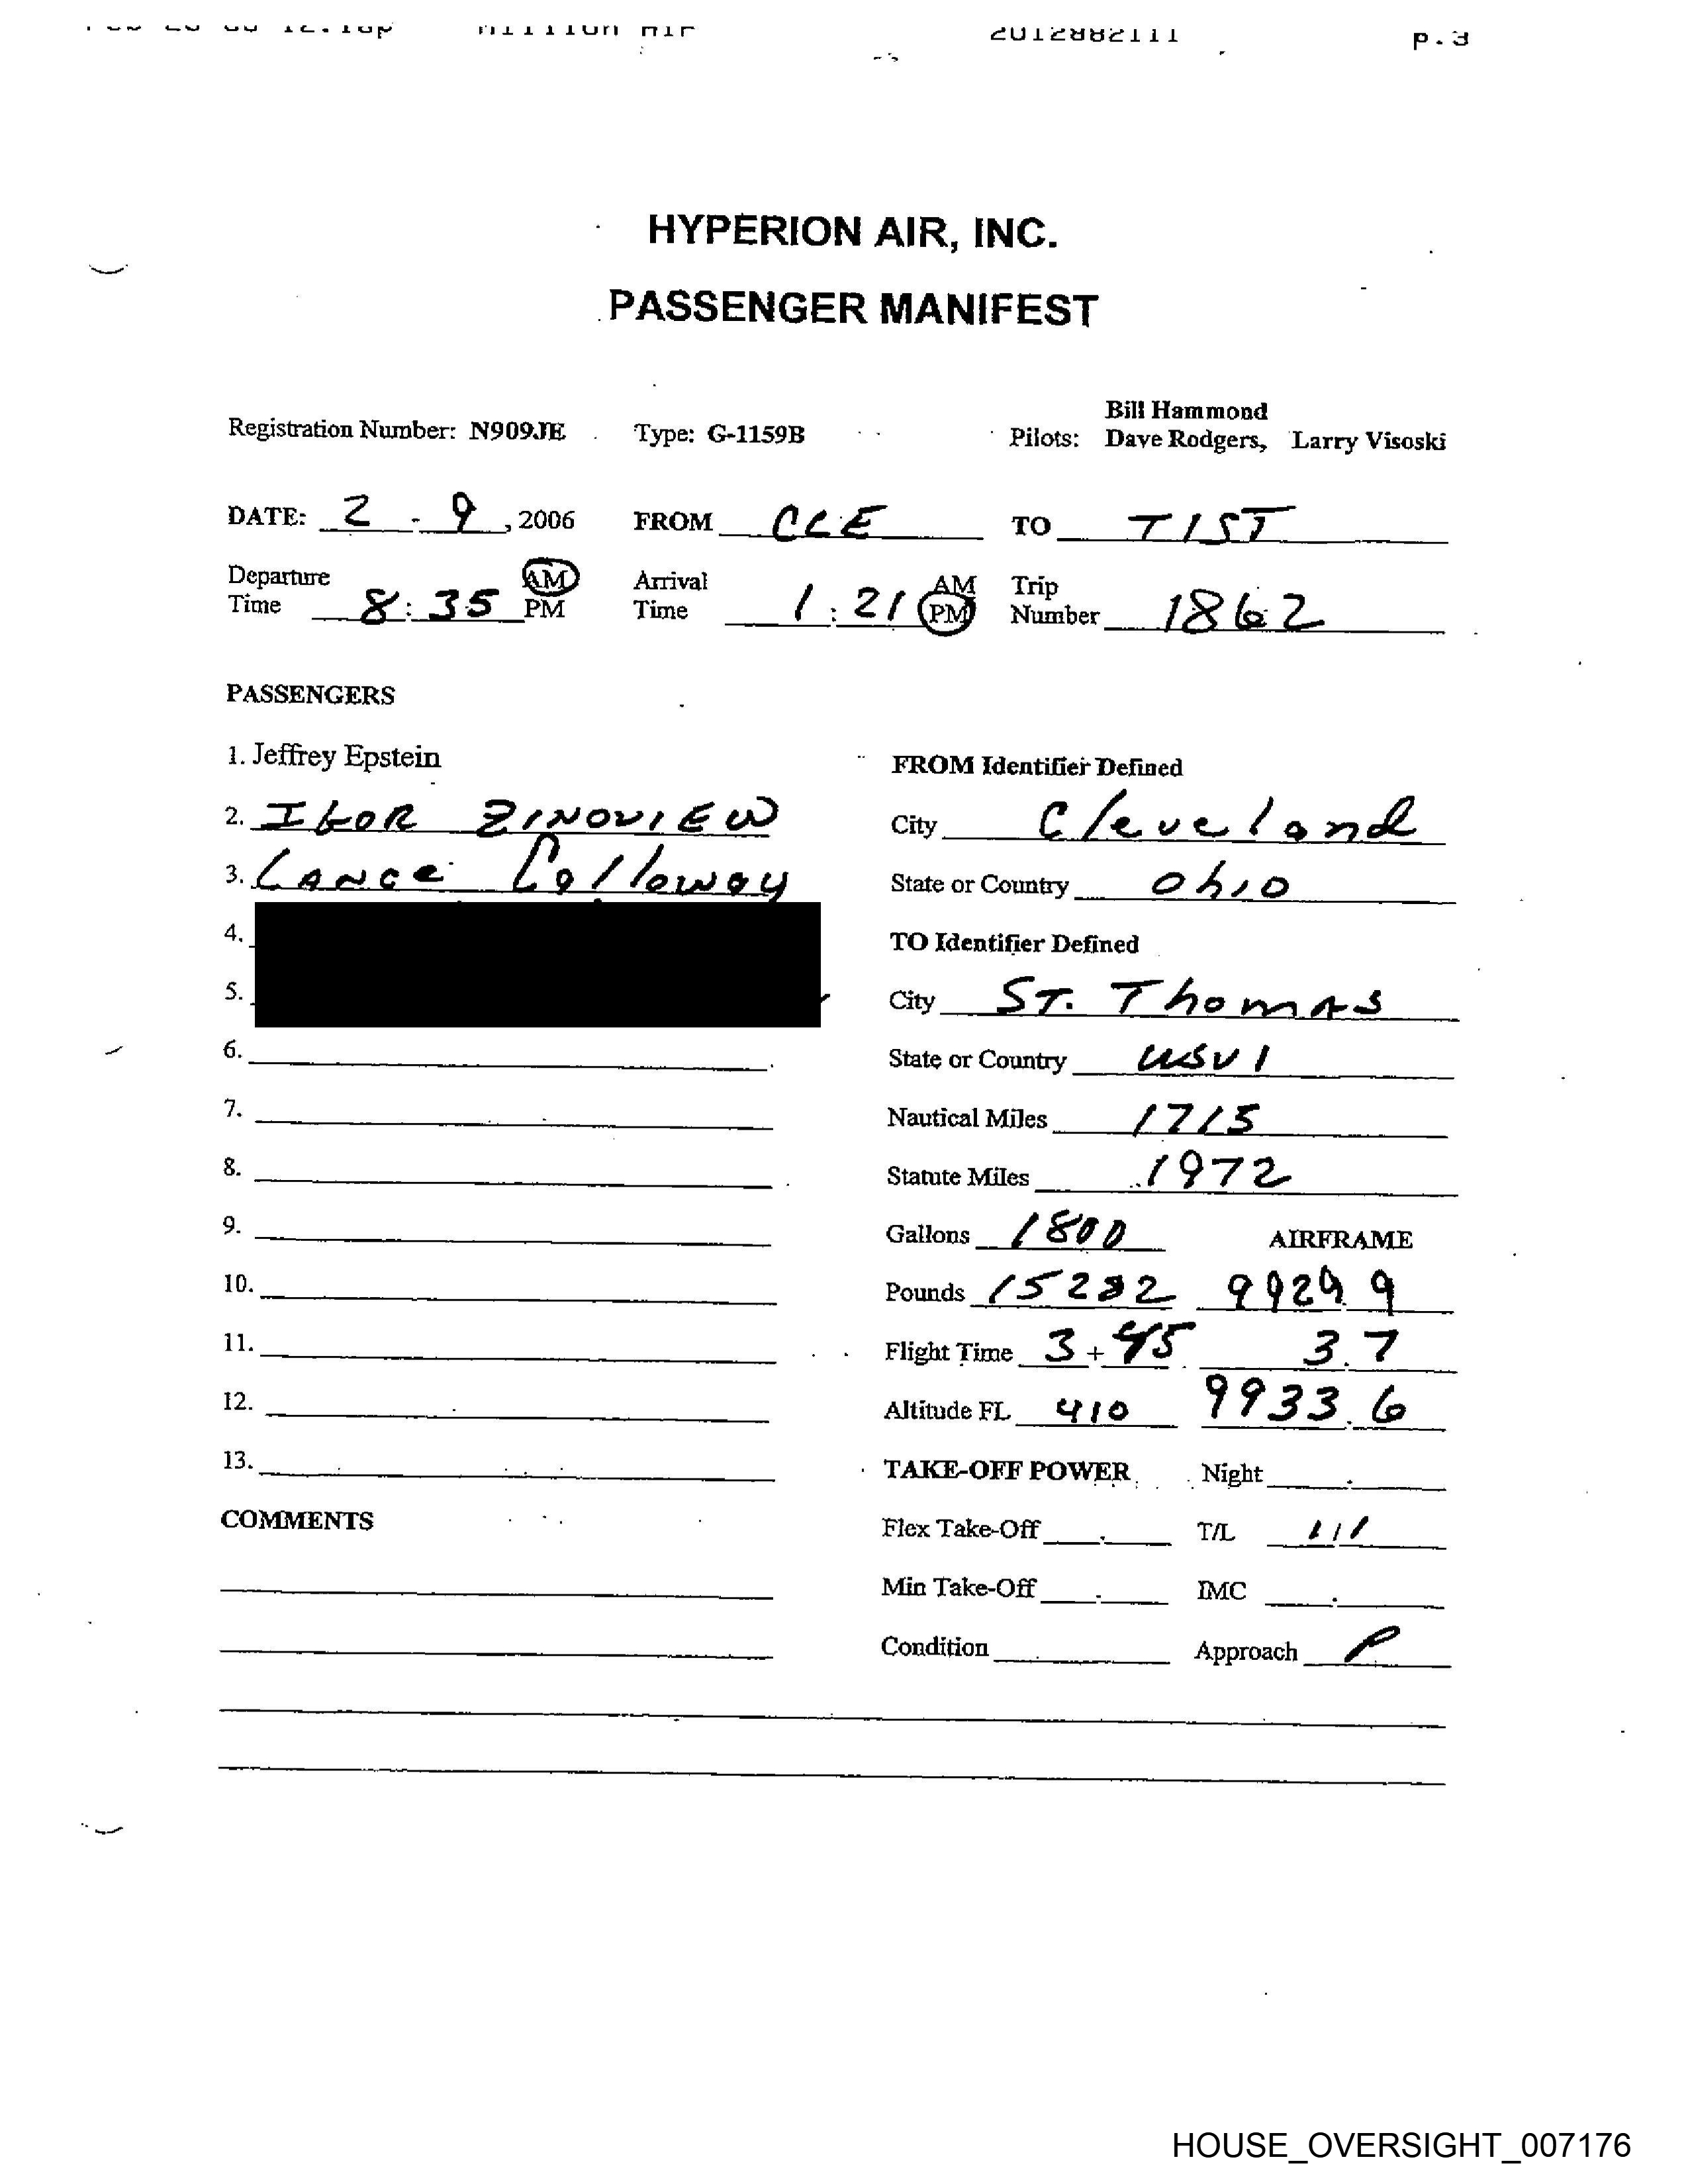 12:10p Million Air 2012882111 p.3
HYPERION AIR, INC.
PASSENGER MANIFEST
Bill Hammond
Registration Number: N909JE Type: G-1159B Pilots: Dave Rodgers, Larry Visoski
DATE: 2 - 9, 2006 FROM CLE TO TIST
Departure Time 8:35 AM PM Arrival Time 1:21 AM PM Trip Number 1862
PASSENGERS
1. Jeffrey Epstein
FROM Identifier Defined
2. IGOR ZINOVIEW
City Cleveland
3. LANCE Calloway
State or Country Ohio
4.
TO Identifier Defined
5.
City ST. ThomAS
6.
State or Country USVI
7.
Nautical Miles 1715
8.
Statute Miles 1972
9.
Gallons 1800 AIRFRAME
10.
Pounds 9929.9
11.
Flight Time 3+45 3.7
12.
Altitude FL 410 9933.6
13.
TAKE-OFF POWER Night
COMMENTS
Flex Take-Off T/L 1/1
Min Take-Off IMC
Condition Approach P
HOUSE_OVERSIGHT_007176